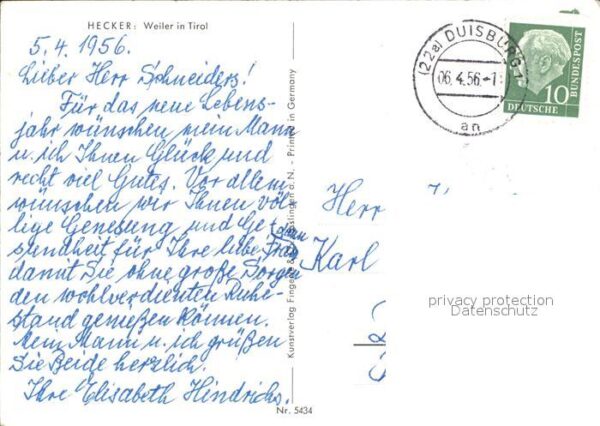 HECKER: Weiler in Tirol
5. 4. 1956.
Lieber Herr Schneiders!
Für das neue Lebens-
jahr wünschen mein Mann
u. ich Ihnen Glück und
recht viel Gutes. Vor allem
wünschen wir Ihnen völ-
lige Genesung und Ge-
sundheit für Ihre liebe Frau
damit Sie ohne große Sorgen
den wohlverdienten Ruhe-
stand genießen können.
Mein Mann u. ich grüßen
Sie Beide herzlich.
Ihre Elisabeth Hindrichs.
Nr. 5434
Kunstverlag Finger Esslingen a. N. - Printed in Germany
(22a) DUISBURG 1
06. 4. 56. -1
an
DEUTSCHE
BUNDESPOST
10
Herr
Karl
privacy protection
Datenschutz